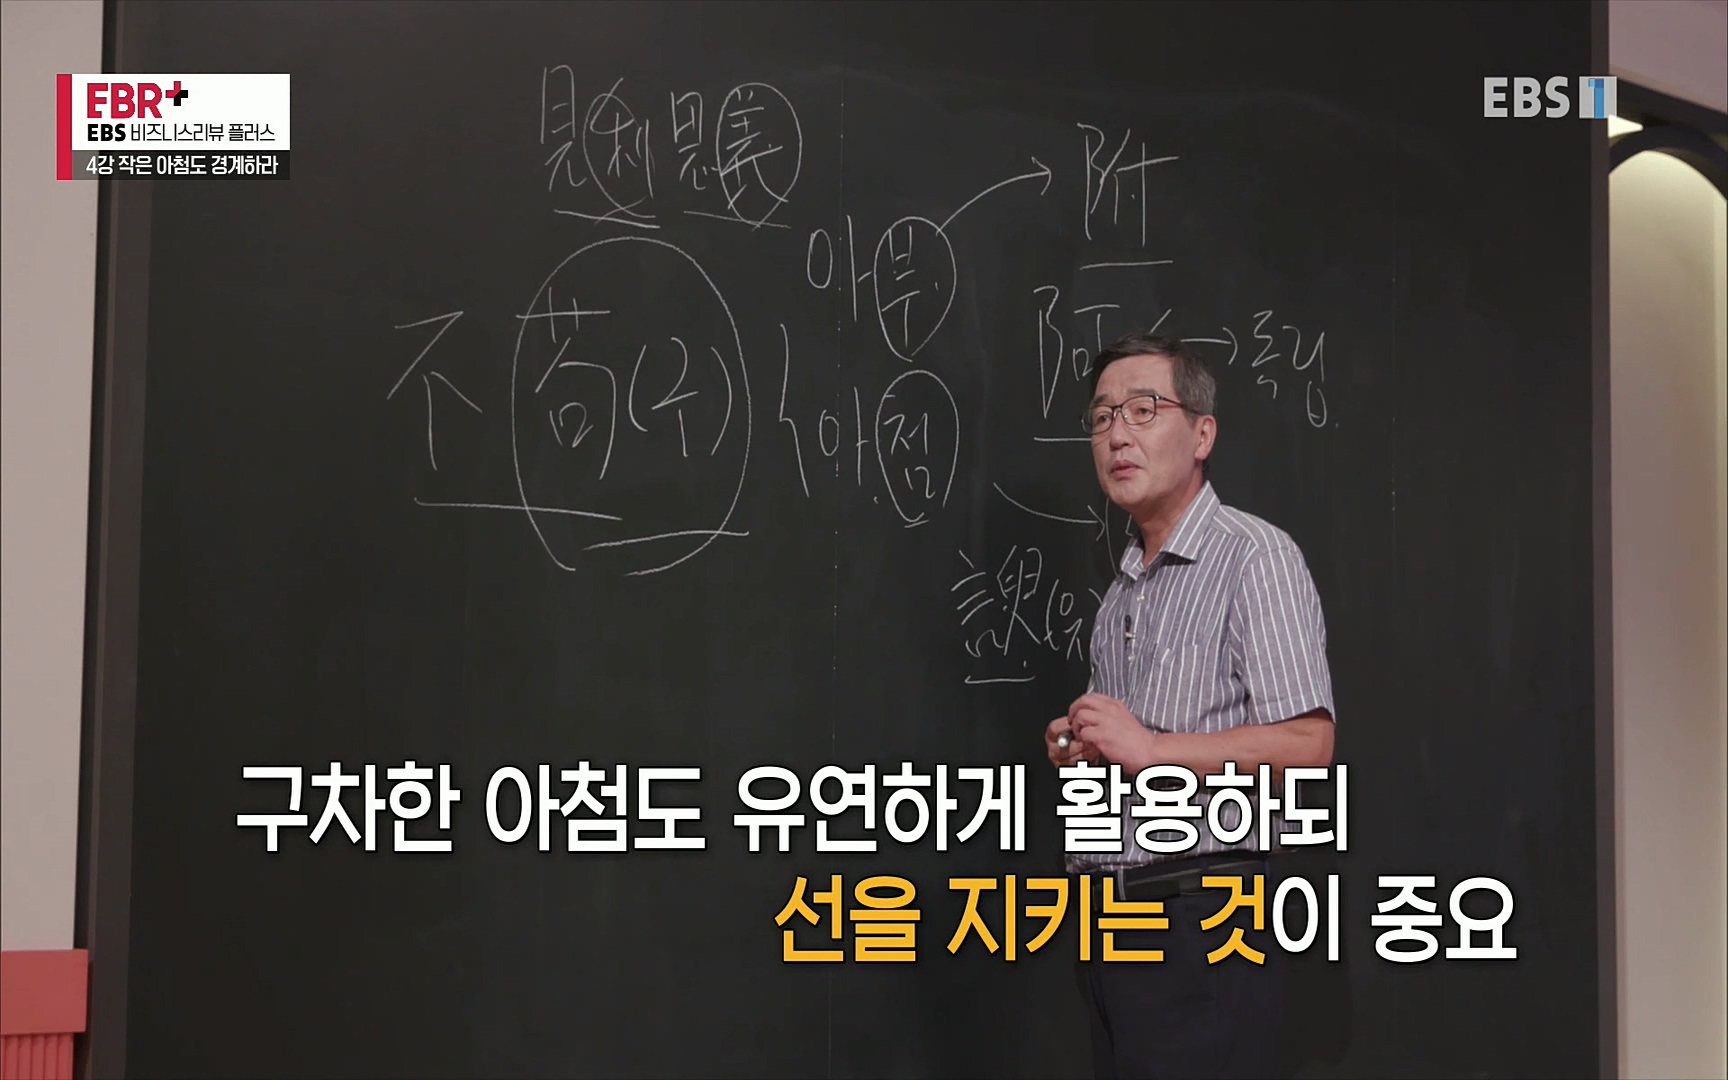 EBR+
EBS 비즈니스리뷰 플러스
4강 작은 아첨도 경계하라
EBS 1
見利思義
아부 → 附
不苟(구)
아첨
阿 → 독립
諛(유
구차한 아첨도 유연하게 활용하되
선을 지키는 것이 중요